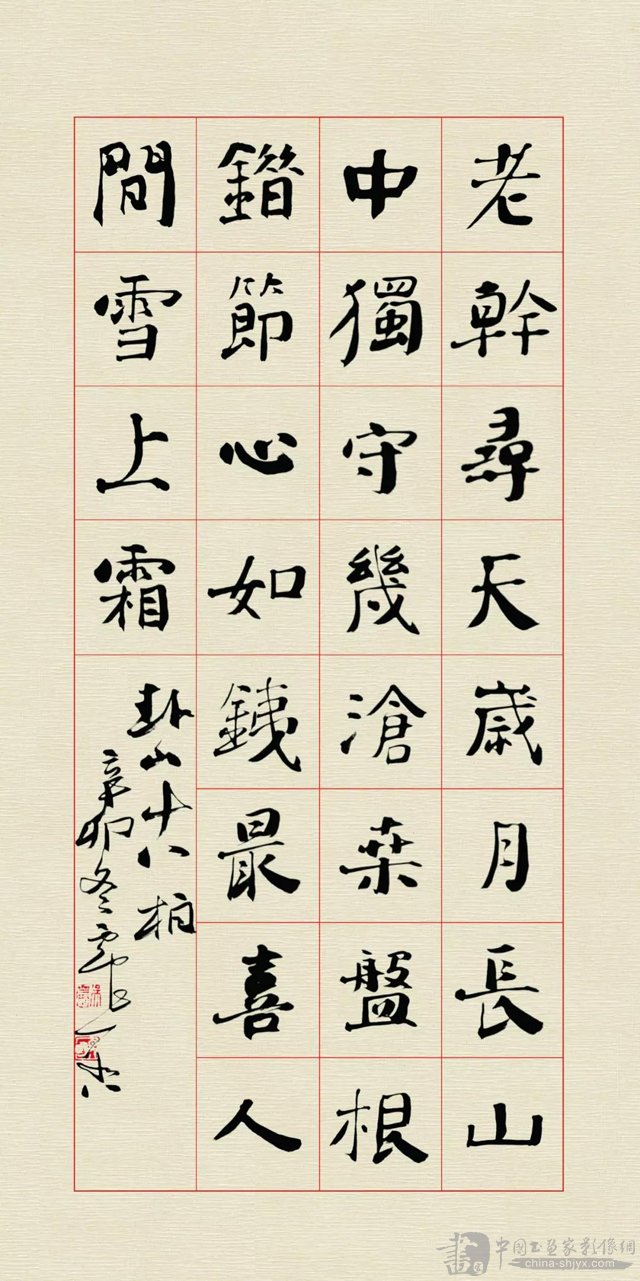 老幹尋天歲月長山
中獨守幾滄桑盤根
錯節心如鐵最喜人
間雪上霜
卦山十八柏
辛卯冬
中國書畫家影像網
china-shjyx.com